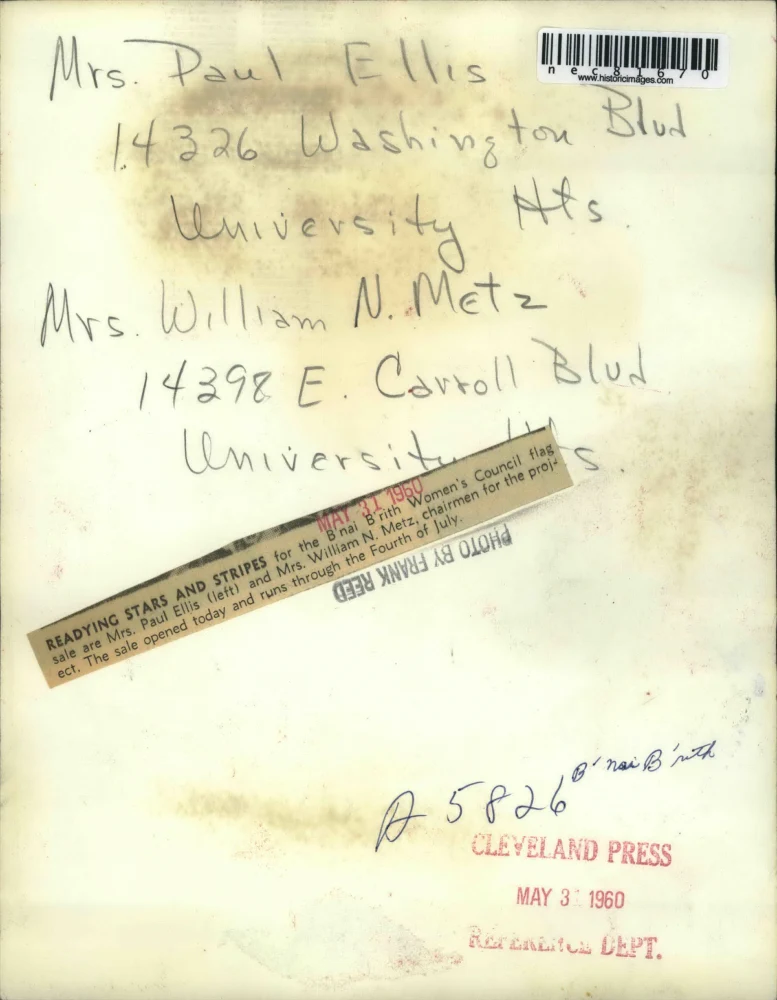 Mrs. Paul Ellis
nec81670
www.historicimages.com
14326 Washington Blvd
University Hts.
Mrs. William N. Metz
14398 E. Carroll Blvd
University Hts.
MAY 31 1960
READYING STARS AND STRIPES for the B'nai B'rith Women's Council flag
sale are Mrs. Paul Ellis (left) and Mrs. William N. Metz, chairmen for the proj-
ect. The sale opened today and runs through the Fourth of July.
PHOTO BY FRANK REED
B'nai B'rith
A 5826
CLEVELAND PRESS
MAY 31 1960
REFERENCE DEPT.